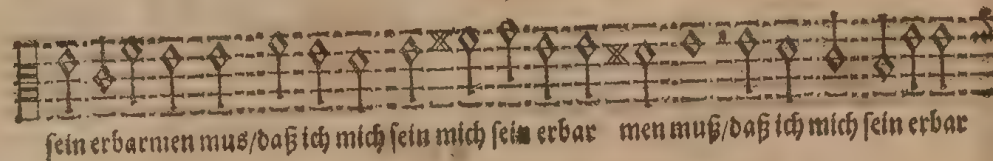 sein erbarmen mus/daß ich mich sein mich sein erbar men muß/daß ich mich sein erbar